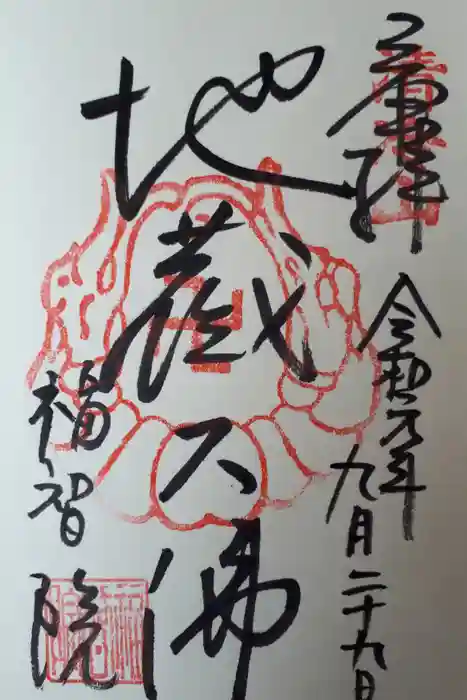 奉拝
令和元年
九月二十九日
地蔵大佛
福智院